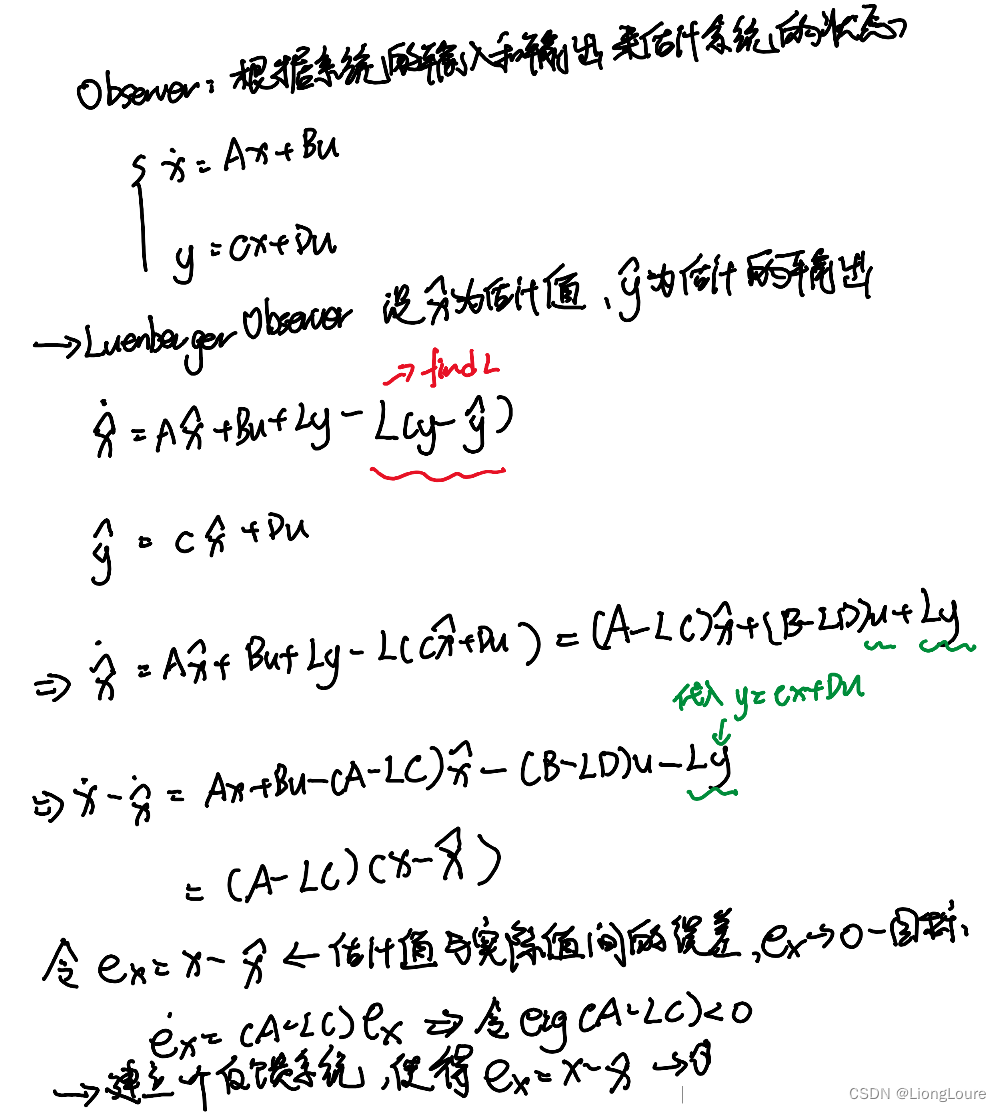 Observer: 根据系统的输入和输出来估计系统的状态
{ ẋ = Ax + Bu
y = Cx + Du
→ Luenberger Observer 设x̂为估计值、ŷ为估计的输出
→ find L
x̂̇ = Ax̂ + Bu + Ly - L(y - ŷ)
ŷ = Cx̂ + Du
⇒ x̂̇ = Ax̂ + Bu + Ly - L(Cx̂ + Du) = (A - LC)x̂ + (B - LD)u + Ly
代入 y = Cx + Du
⇒ ẋ - x̂̇ = Ax + Bu - (A - LC)x̂ - (B - LD)u - Ly
= (A - LC)(x - x̂)
令 eₓ = x - x̂ ← 估计值与实际值间的误差, eₓ → 0 - 目标
ėₓ = (A - LC)eₓ ⇒ 令 eig(A - LC) < 0
→ 建立一个反馈系统, 使得 eₓ = x - x̂ → 0
CSDN @LiongLoure